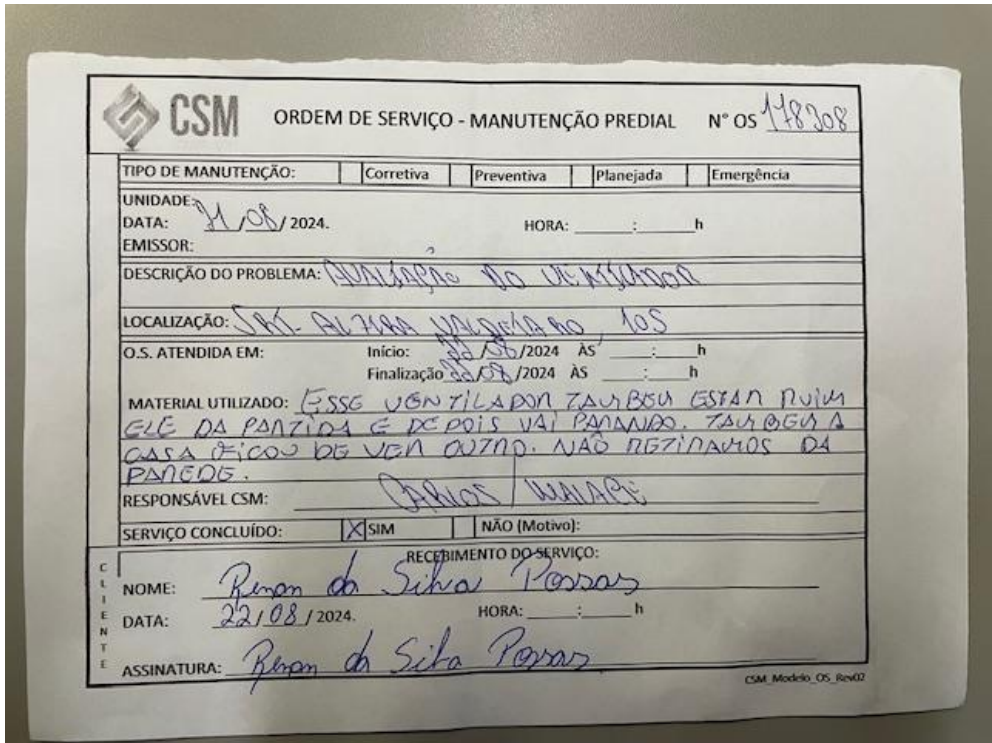 CSM ORDEM DE SERVIÇO - MANUTENÇÃO PREDIAL N° OS 178308
TIPO DE MANUTENÇÃO: Corretiva Preventiva Planejada Emergência
UNIDADE:
DATA: 21/08/2024. HORA: ___:___h
EMISSOR:
DESCRIÇÃO DO PROBLEMA: AVALIAÇÃO DO VENTILADOR
LOCALIZAÇÃO: 105
O.S. ATENDIDA EM: Início: 22/08/2024 ÀS ___:___h
Finalização 22/08/2024 ÀS ___:___h
MATERIAL UTILIZADO: ESSE VENTILADOR TAMBEM ESTAR RUIM
ELE DA PARTIDA E DEPOIS VAI PARANDO. TAMBEM A
CASA FICOU DE VER OUTRO. NÃO RETIRAMOS DA
PAREDE.
RESPONSÁVEL CSM: CARLOS /
SERVIÇO CONCLUÍDO: X SIM NÃO (Motivo):
RECEBIMENTO DO SERVIÇO:
CLIENTE
NOME: Renan da Silva Possas
DATA: 22/08/2024. HORA: ___:___h
ASSINATURA: Renan da Silva Possas
CSM_Modelo_OS_Rev02